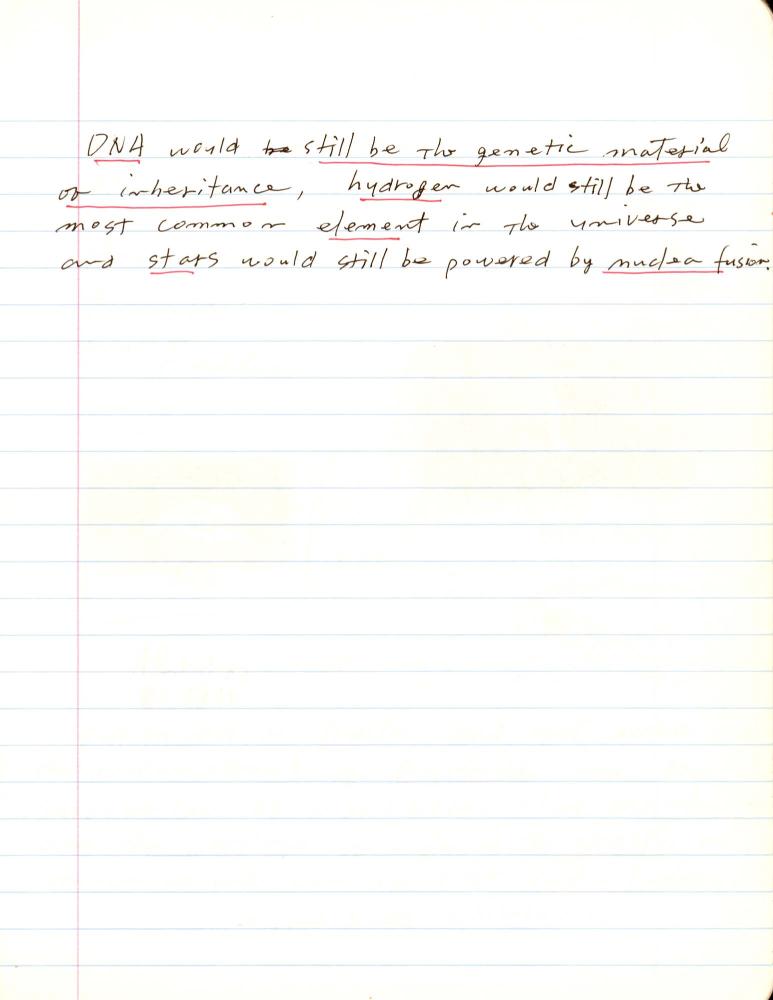 DNA would be still be the genetic material
of inheritance, hydrogen would still be the
most common element in the universe
and stars would still be powered by nuclea fusion.